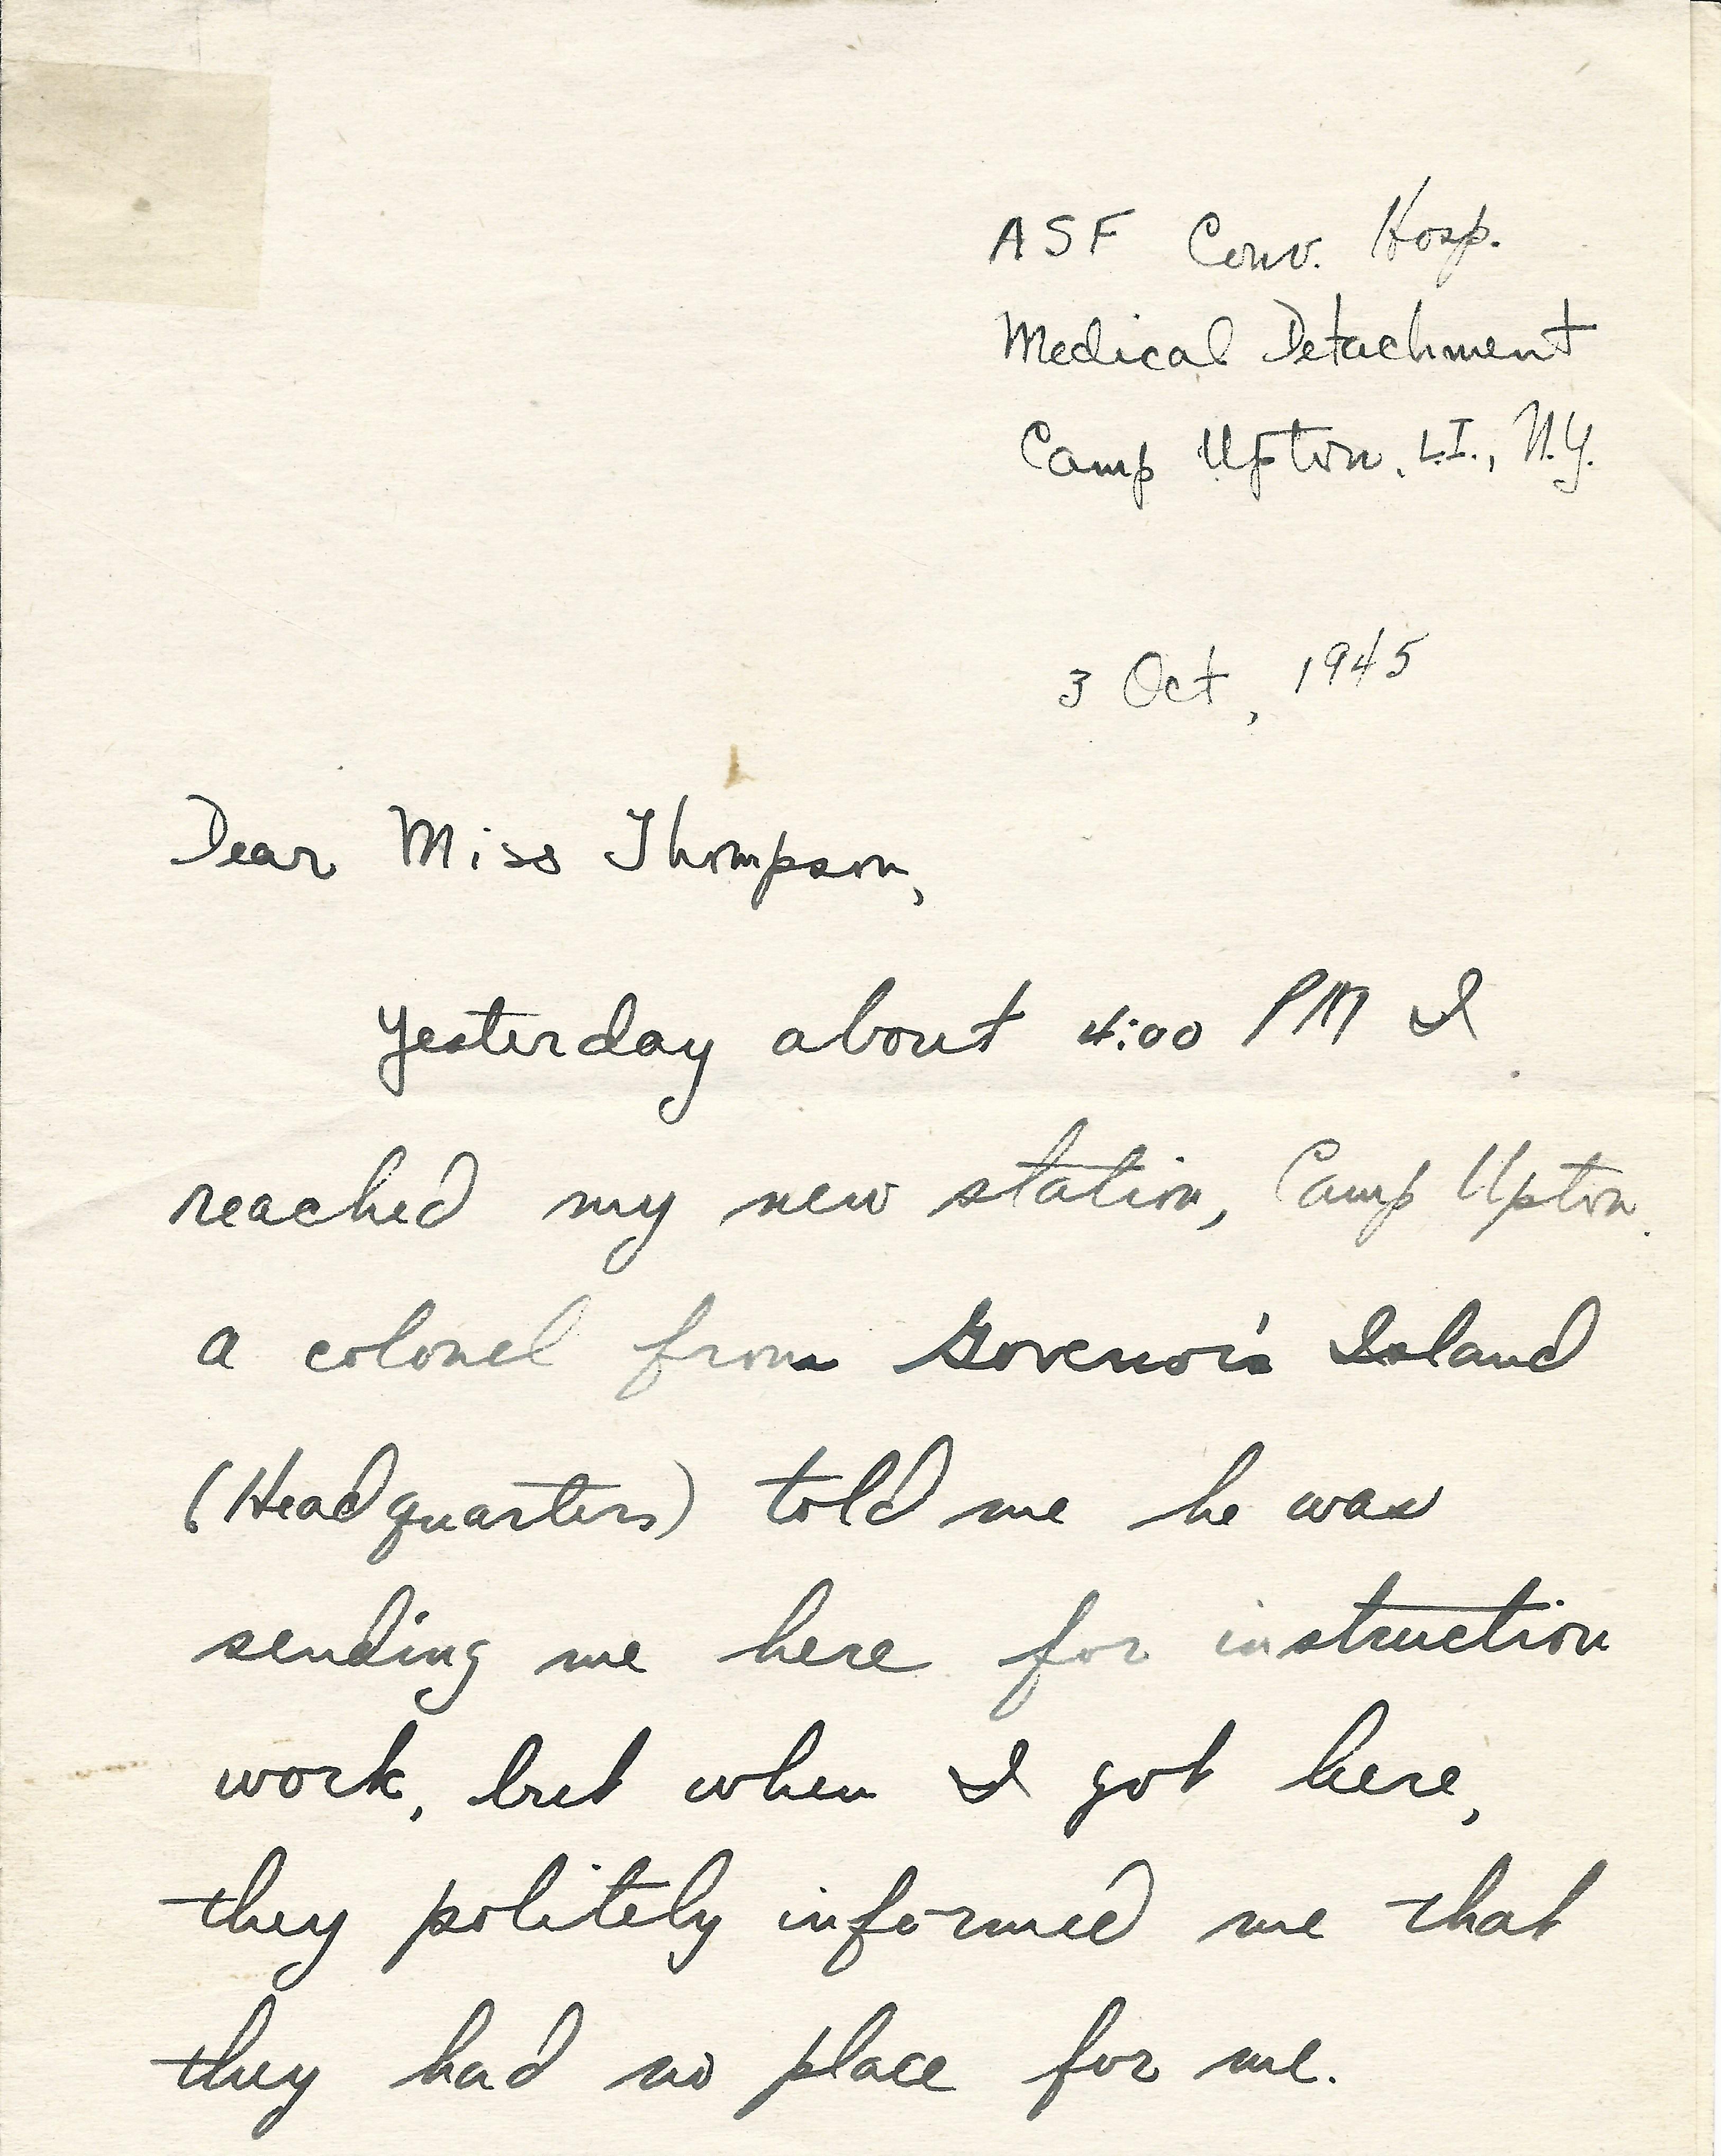 ASF Conv. Hosp.
Medical Detachment
Camp Upton, L.I., N.Y.
3 Oct, 1945
Dear Miss Thompson,
Yesterday about 4:00 PM I
reached my new station, Camp Upton.
A colonel from Govenor's Island
(Headquarters) told me he was
sending me here for instruction
work, but when I got here,
they politely informed me that
they had no place for me.